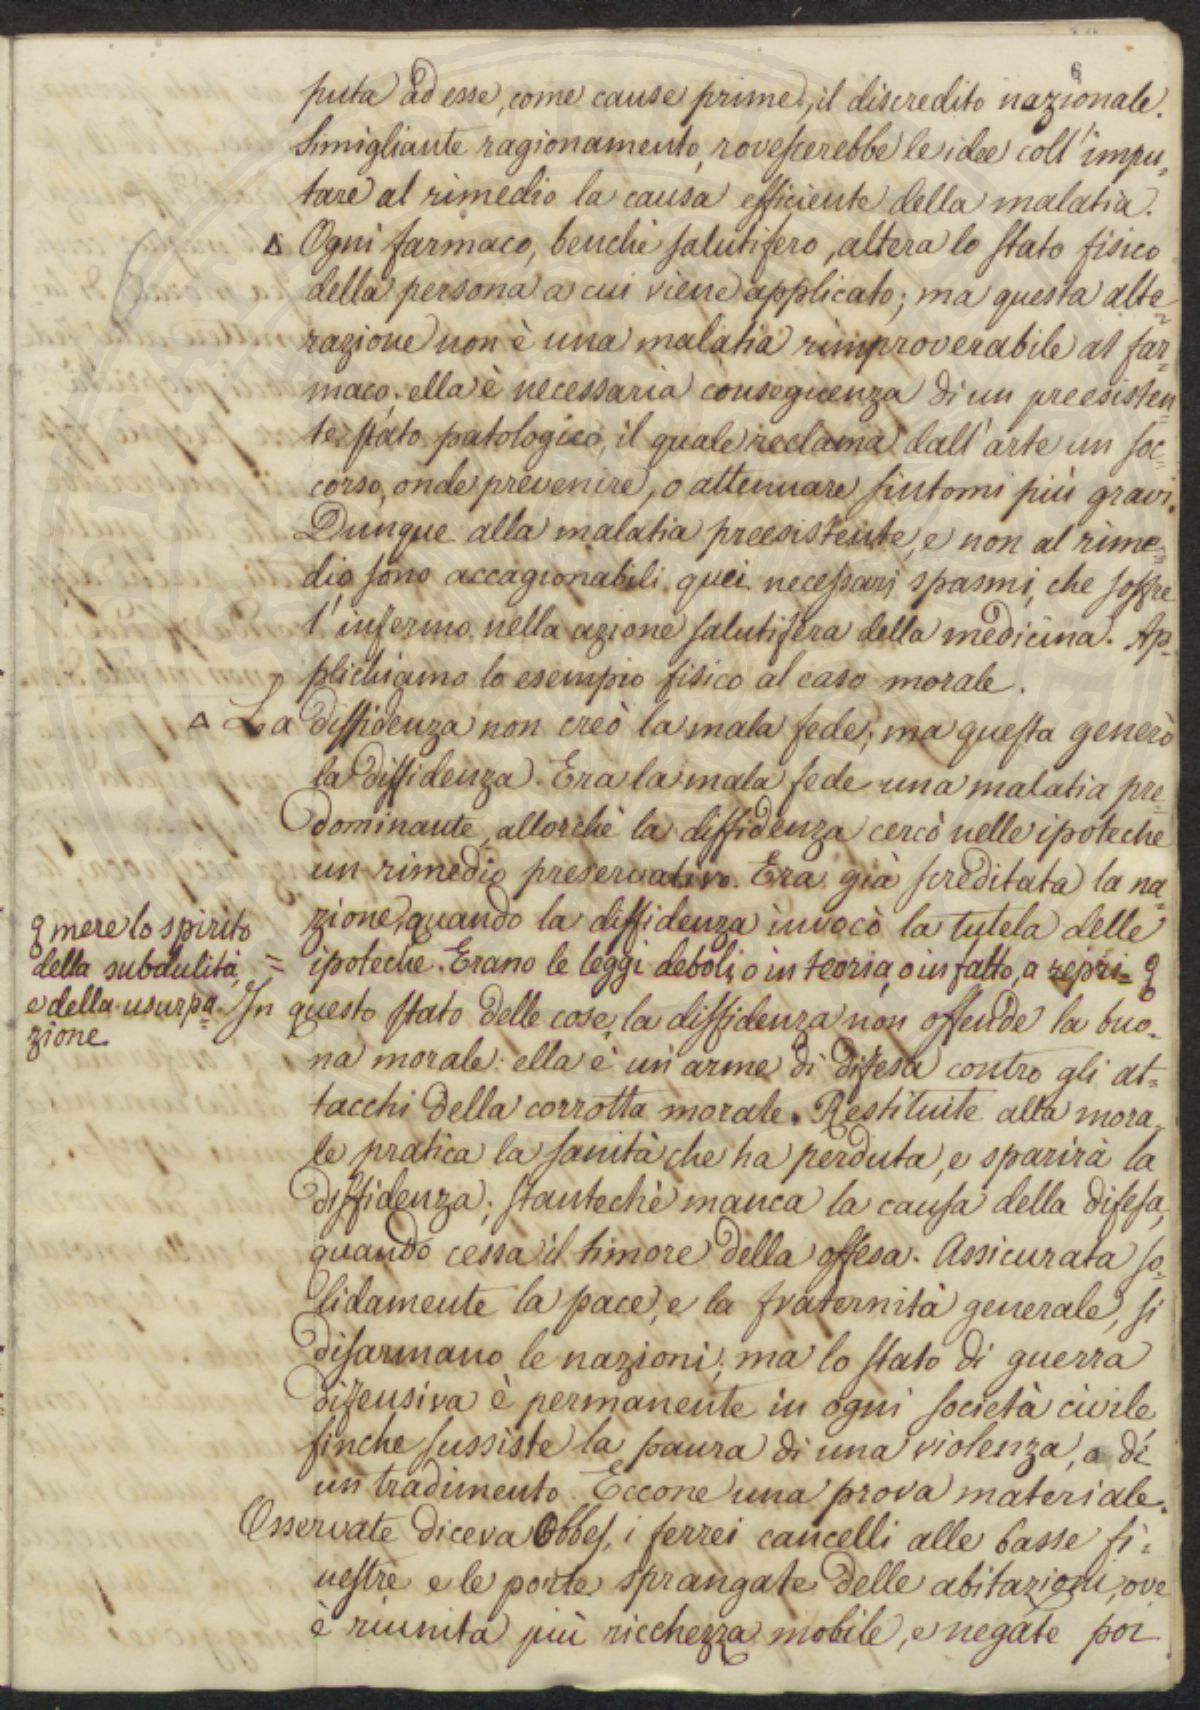 6
puta ad esse, come cause prime, il discredito nazionale.
Simigliante ragionamento, rovescerebbe le idee coll'impu=
tare al rimedio la causa efficiente della malatia.
Δ Ogni farmaco, benchè salutifero, altera lo stato fisico
della persona a cui viene applicato; ma questa alte=
razione non è una malatia rimproverabile al far=
maco. ella è necessaria conseguenza di un preesisten=
te stato patologico, il quale reclama dall'arte un soc=
corso, onde prevenire, o attenuare sintomi più gravi.
Dunque alla malatia preesistente, e non al rime=
dio sono accagionabili quei necessarj spasmi, che soffre
l'infermo nella azione salutifera della medicina. Ap=
plichiamo lo esempio fisico al caso morale.
Δ La diffidenza non creò la mala fede; ma questa generò
la diffidenza. Era la mala fede una malatia pre=
dominante, allorchè la diffidenza cercò nelle ipoteche
un rimedio preservativo. Era già screditata la na=
zione, quando la diffidenza invocò la tutela delle
ipoteche. Erano le leggi deboli, o in teoria, o in fatto, a repri=
mere lo spirito
della subdulità,
e della usurpa=
zione
= In questo stato delle cose, la diffidenza non offende la buo=
na morale: ella è un'arme di difesa contro gli at=
tacchi della corrotta morale. Restituite alla mora=
le pratica la sanità che ha perduta, e sparirà la
diffidenza; stantechè manca la causa della difesa,
quando cessa il timore della offesa. Assicurata so=
lidamente la pace, e la fraternità generale, si
disarmano le nazioni; ma lo stato di guerra
difensiva è permanente in ogni società civile
finche sussiste la paura di una violenza, o di
un tradimento. Eccone una prova materiale.
Osservate diceva Obbes, i ferrei cancelli alle basse fi=
nestre e le porte sprangate delle abitazioni, ove
è riunita più ricchezza mobile, e negate poi